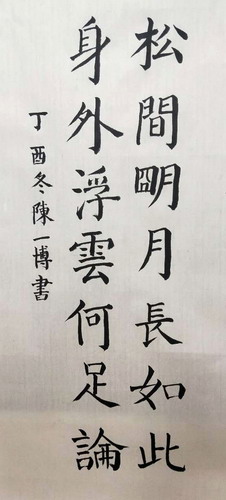 松間明月長如此
身外浮雲何足論
丁酉冬陳一博書